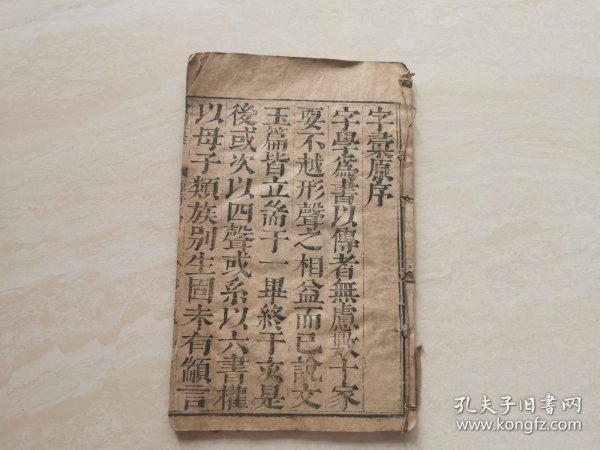 字彙原序
字學為書以傳者無慮數十家
要不越形聲之相益而已說文
玉篇皆立耑于一畢終于亥是
後或次以四聲或系以六書權
以母子類族別生固未有顓言
孔夫子旧书网
www.kongfz.com